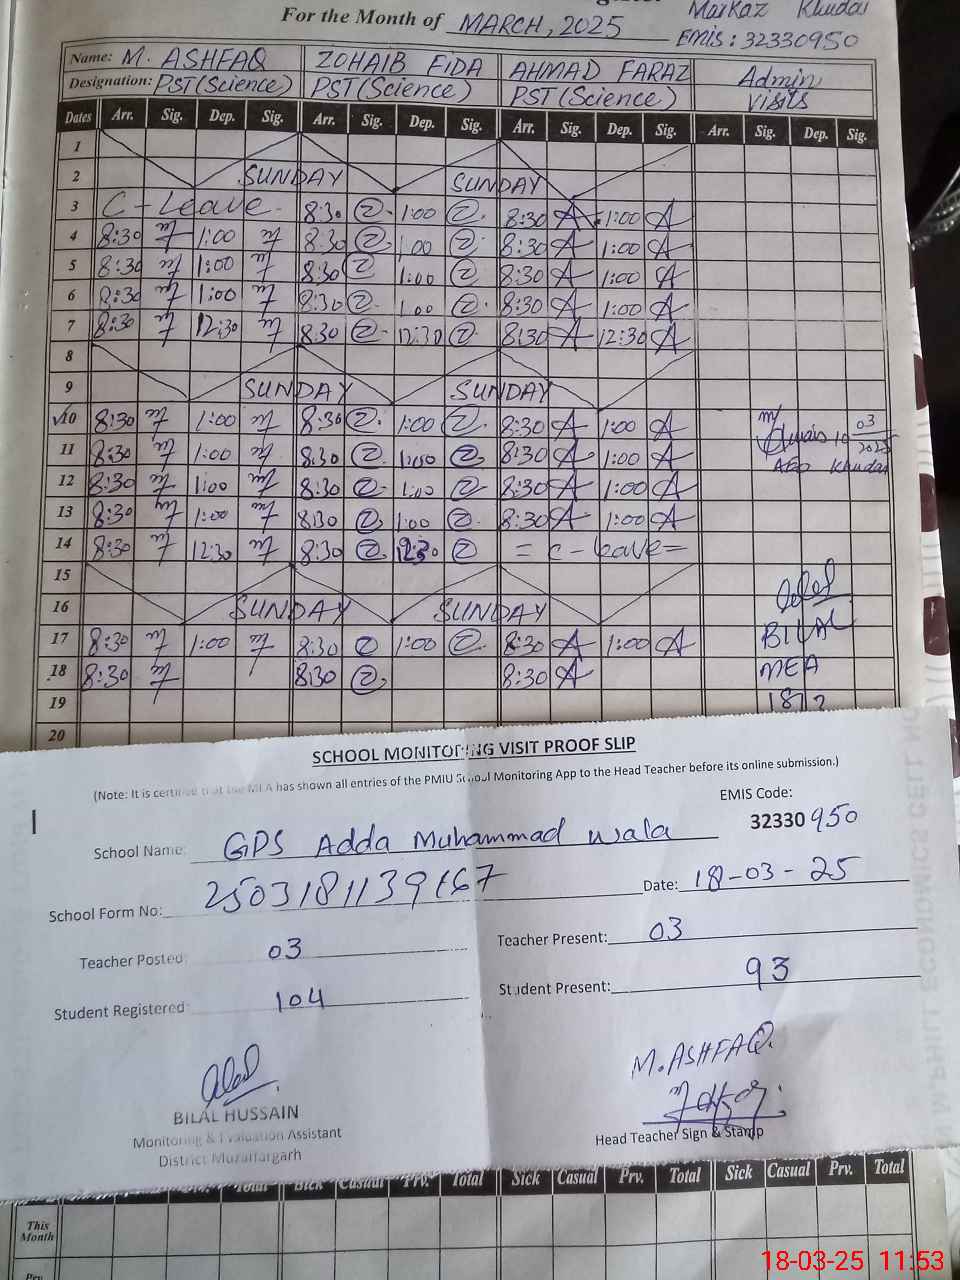 For the Month of MARCH, 2025
Markaz Khudai
EMIS: 32330950
Name: M. ASHFAQ ZOHAIB FIDA AHMAD FARAZ Admin
Designation: PST(Science) PST(Science) PST(Science) Visits
Dates Arr. Sig. Dep. Sig. Arr. Sig. Dep. Sig. Arr. Sig. Dep. Sig. Arr. Sig. Dep. Sig.
1
2 SUNDAY SUNDAY
3 C-Leave 8:30 1:00 8:30 A 1:00 A
4 8:30 1:00 8:30 1:00 8:30 A 1:00 A
5 8:30 1:00 8:30 1:00 8:30 A 1:00 A
6 8:30 1:00 8:30 1:00 8:30 A 1:00 A
7 8:30 12:30 8:30 12:30 8:30 A 12:30 A
8
9 SUNDAY SUNDAY
10 8:30 1:00 8:30 1:00 8:30 A 1:00 A 10 03 2025
11 8:30 1:00 8:30 1:00 8:30 A 1:00 A AEO Khudai
12 8:30 1:00 8:30 1:00 8:30 A 1:00 A
13 8:30 1:00 8:30 1:00 8:30 A 1:00 A
14 8:30 12:30 8:30 12:30 = C-Leave =
15
16 SUNDAY SUNDAY
17 8:30 1:00 8:30 1:00 8:30 A 1:00 A BILAL
18 8:30 8:30 8:30 A MEA
19
20
SCHOOL MONITORING VISIT PROOF SLIP
(Note: It is certified that the MEA has shown all entries of the PMIU School Monitoring App to the Head Teacher before its online submission.)
EMIS Code:
32330950
School Name: GPS Adda Muhammad Wala
School Form No: 2503181139167 Date: 18-03-25
Teacher Posted: 03 Teacher Present: 03
Student Registered: 104 Student Present: 93
M. ASHFAQ
BILAL HUSSAIN
Monitoring & Evaluation Assistant
District Muzaffargarh
Head Teacher Sign & Stamp
Total Sick Casual Prv. Total Sick Casual Prv. Total Sick Casual Prv. Total
This Month
Prv
18-03-25 11:53